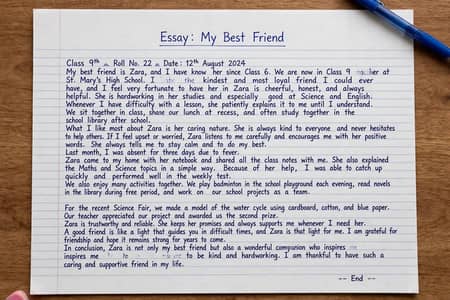 Essay: My Best Friend
Class 9th ▲ Roll No. 22 ▲ Date: 12th August 2024
My best friend is Zara, and I have know her since Class 6. We are now in Class 9
St. Mary's High School. I the kindest and most loyal friend I could ever
have, and I feel very fortunate to have her in Zara is cheerful, honest, and always
helpful. She is hardworking in her studies and especially good at Science and English.
Whenever I have difficulty with a lesson, she patiently explains it to me until I understand.
We sit together in class, share our lunch at recess, and often study together in the
school library after school.
What I like most about Zara is her caring nature. She is always kind to everyone and never hesitates
to help others. If I feel upset or worried, Zara listens to me carefully and encourages me with her positive
words. She always tells me to stay calm and to do my best.
Last month, I was absent for three days due to fever.
Zara came to my home with her notebook and shared all the class notes with me. She also explained
the Maths and Science topics in a simple way. Because of her help, I was able to catch up
quickly and performed well in the weekly test.
We also enjoy many activities together. We play badminton in the school playground each evening, read novels
in the library during free period, and work on our school projects as a team.
For the recent Science Fair, we made a model of the water cycle using cardboard, cotton, and blue paper.
Our teacher appreciated our project and awarded us the second prize.
Zara is trustworthy and reliable. She keeps her promises and always supports me whenever I need her.
A good friend is like a light that guides you in difficult times, and Zara is that light for me. I am grateful for
friendship and hope it remains strong for years to come.
In conclusion, Zara is not only my best friend but also a wonderful companion who inspires
inspires me to be kind and hardworking. I am thankful to have such a
caring and supportive friend in my life.
-- End --